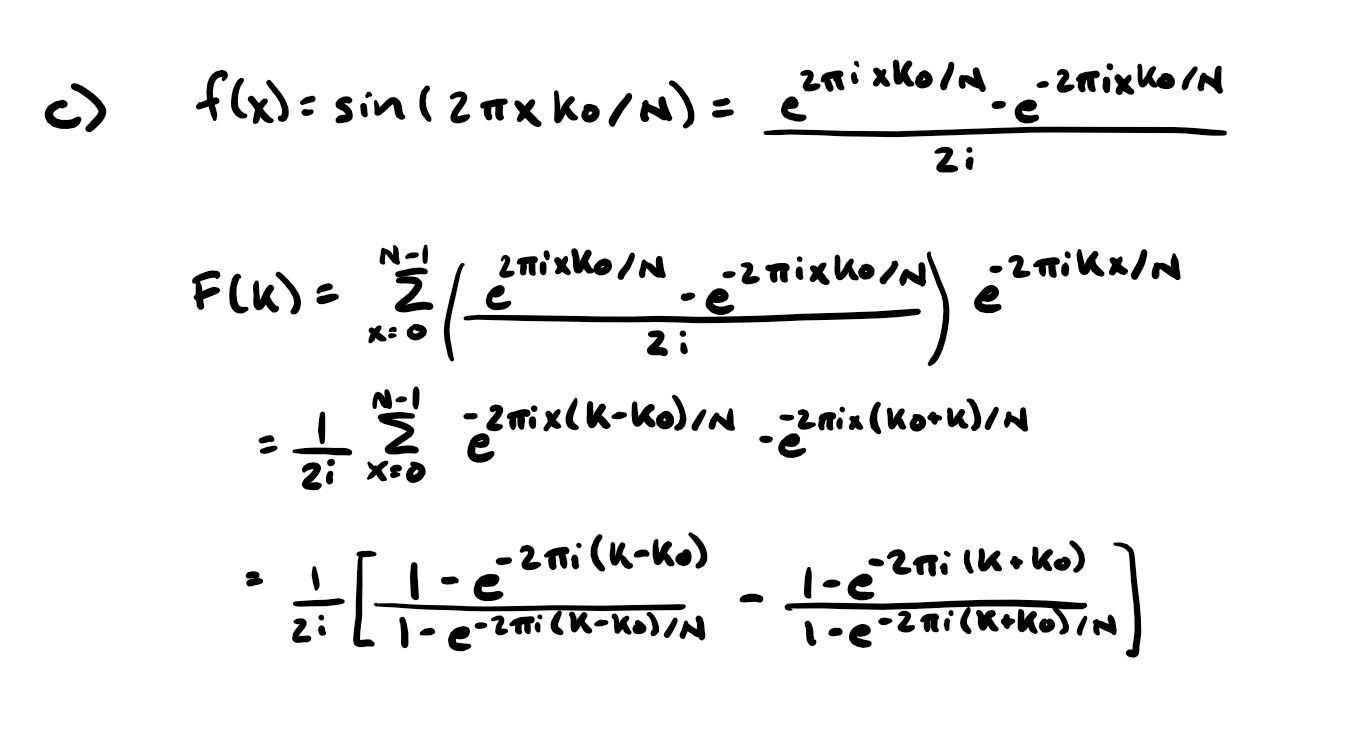 c) f(x) = sin(2πxk₀/N) = (e^{2πixk₀/N} - e^{-2πixk₀/N}) / 2i
F(k) = \sum_{x=0}^{N-1} ((e^{2πixk₀/N} - e^{-2πixk₀/N}) / 2i) e^{-2πikx/N}
= 1/2i \sum_{x=0}^{N-1} e^{-2πix(k-k₀)/N} - e^{-2πix(k₀+k)/N}
= 1/2i [ (1 - e^{-2πi(k-k₀)}) / (1 - e^{-2πi(k-k₀)/N}) - (1 - e^{-2πi(k+k₀)}) / (1 - e^{-2πi(k+k₀)/N}) ]